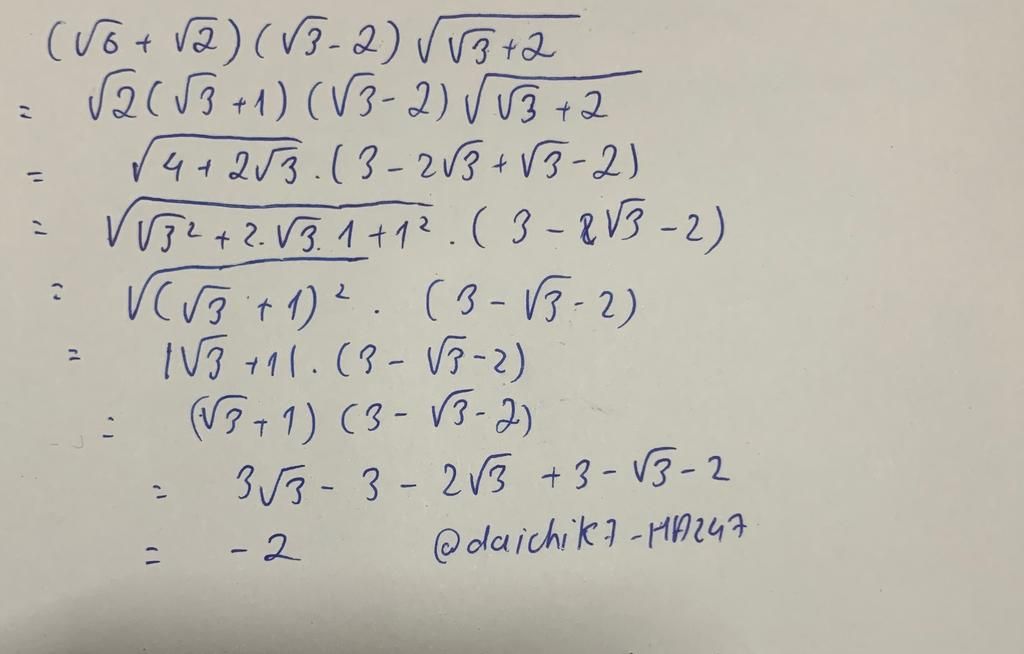 (√6 + √2)(√3 - 2)√(√3 + 2)
= √2(√3 + 1)(√3 - 2)√(√3 + 2)
= √(4 + 2√3) . (3 - 2√3 + √3 - 2)
= √(√3² + 2.√3.1 + 1²) . (3 - √3 - 2)
= √((√3 + 1)²) . (3 - √3 - 2)
= |√3 + 1| . (3 - √3 - 2)
= (√3 + 1)(3 - √3 - 2)
= 3√3 - 3 - 2√3 + 3 - √3 - 2
= -2 @daichik7-HA247